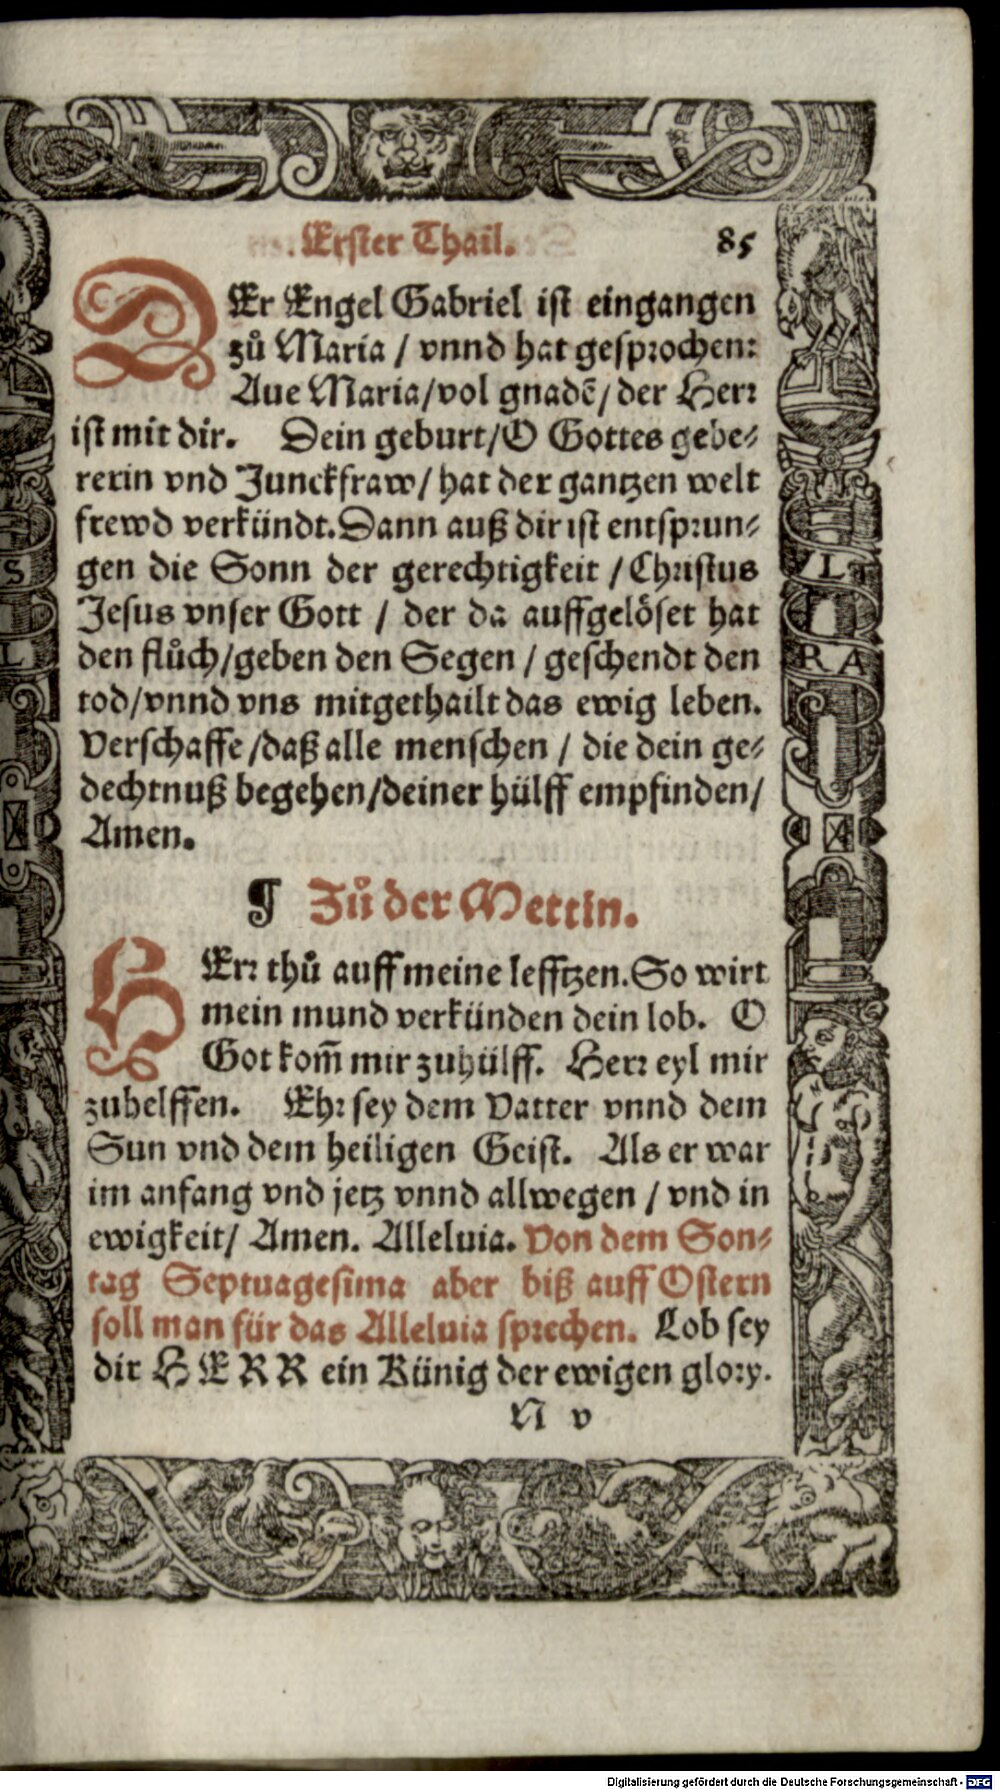 Erster Thail. 85
DEr Engel Gabriel ist eingangen
zů Maria / vnnd hat gesprochen:
Aue Maria/vol gnadẽ/ der Herr
ist mit dir. Dein geburt/O Gottes gebe-
rerin vnd Junckfraw/ hat der gantzen welt
frewd verkündt. Dann auß dir ist entsprun-
gen die Sonn der gerechtigkeit / Christus
Jesus vnser Gott / der da auffgelöset hat
den flůch/geben den Segen / geschendt den
tod/vnnd vns mitgethailt das ewig leben.
Verschaffe /daß alle menschen / die dein ge-
dechtnuß begehen/deiner hülff empfinden/
Amen.
¶ Zů der Mettin.
HErr thů auff meine lefftzen. So wirt
mein mund verkünden dein lob. O
Got kom̃ mir zuhülff. Herr eyl mir
zuhelffen. Ehr sey dem Vatter vnnd dem
Sun vnd dem heiligen Geist. Als er war
im anfang vnd jetz vnnd allwegen / vnd in
ewigkeit/ Amen. Alleluia. Von dem Son-
tag Septuagesima aber biß auff Ostern
soll man für das Alleluia sprechen. Lob sey
dir HERR ein Künig der ewigen glory.
N v
S
L
L
RA
Digitalisierung gefördert durch die Deutsche Forschungsgemeinschaft - DFG